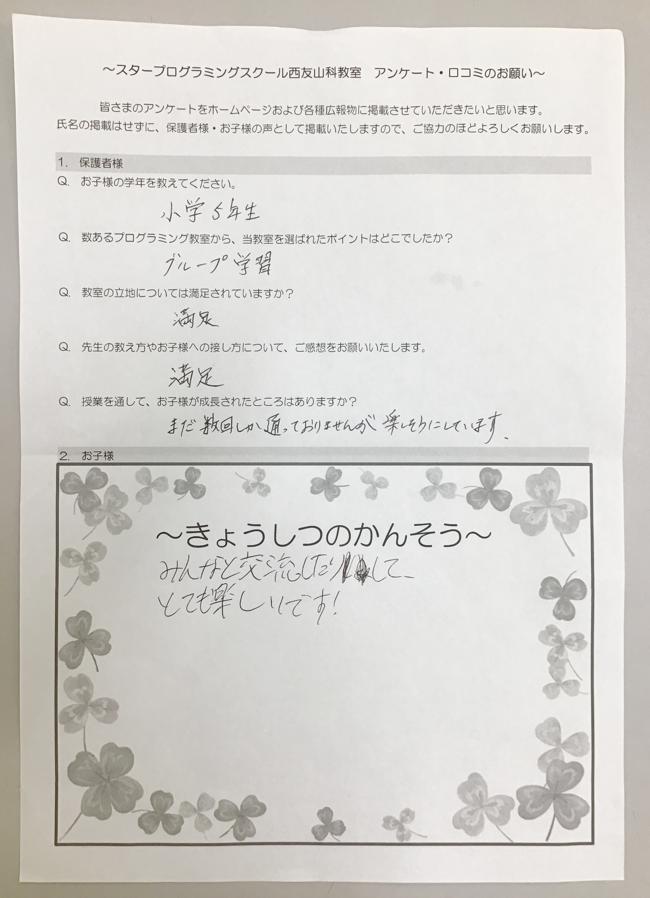 ～スタープログラミングスクール西友山科教室　アンケート・口コミのお願い～
皆さまのアンケートをホームページおよび各種広報物に掲載させていただきたいと思います。
氏名の掲載はせずに、保護者様・お子様の声として掲載いたしますので、ご協力のほどよろしくお願いします。
1.　保護者様
Q.　お子様の学年を教えてください。
小学5年生
Q.　数あるプログラミング教室から、当教室を選ばれたポイントはどこでしたか？
グループ学習
Q.　教室の立地については満足されていますか？
満足
Q.　先生の教え方やお子様への接し方について、ご感想をお願いいたします。
満足
Q.　授業を通して、お子様が成長されたところはありますか？
まだ数回しか通っておりませんが楽しそうにしています。
2.　お子様
～きょうしつのかんそう～
みんなと交流したりして、
とても楽しいです！